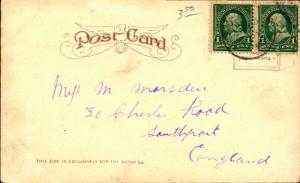 3.50
Post Card
1 1
Miss M Marsden
30 Chester Road
Southport
England
THIS SIDE IS EXCLUSIVELY FOR THE ADDRESS.